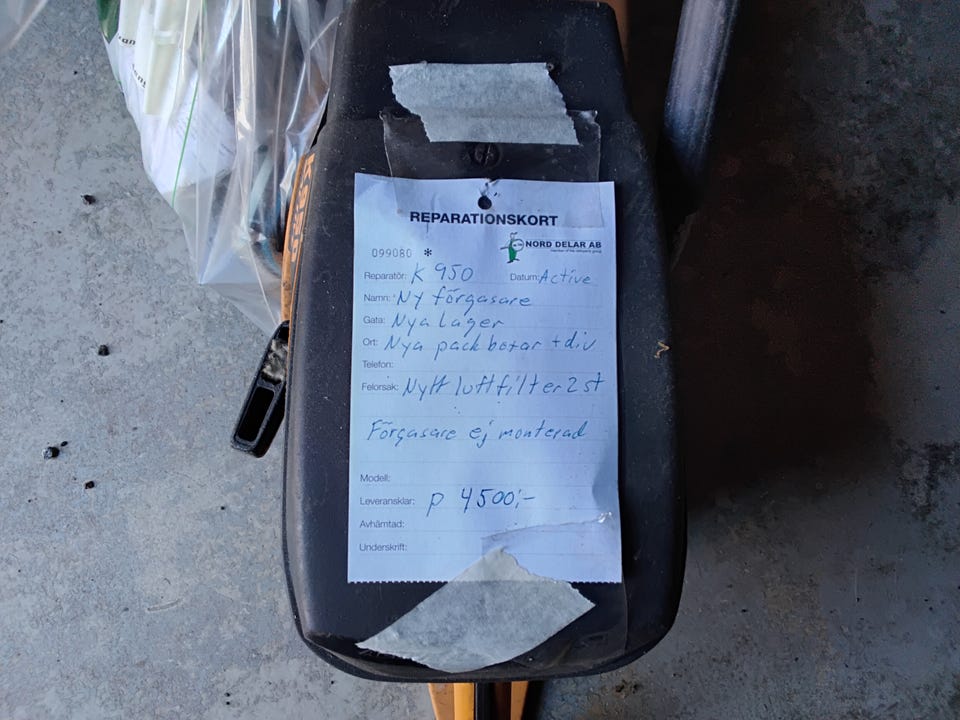 REPARATIONSKORT
099080 *
NORD DELAR AB
Reparatör: K 950 Datum: Active
Namn: Ny förgasare
Gata: Nya lager
Ort: Nya packboxar + div
Telefon:
Felorsak: Nytt luftfilter 2 st
Förgasare ej monterad
Modell:
Leveransklar: p 4500:-
Avhämtad:
Underskrift: